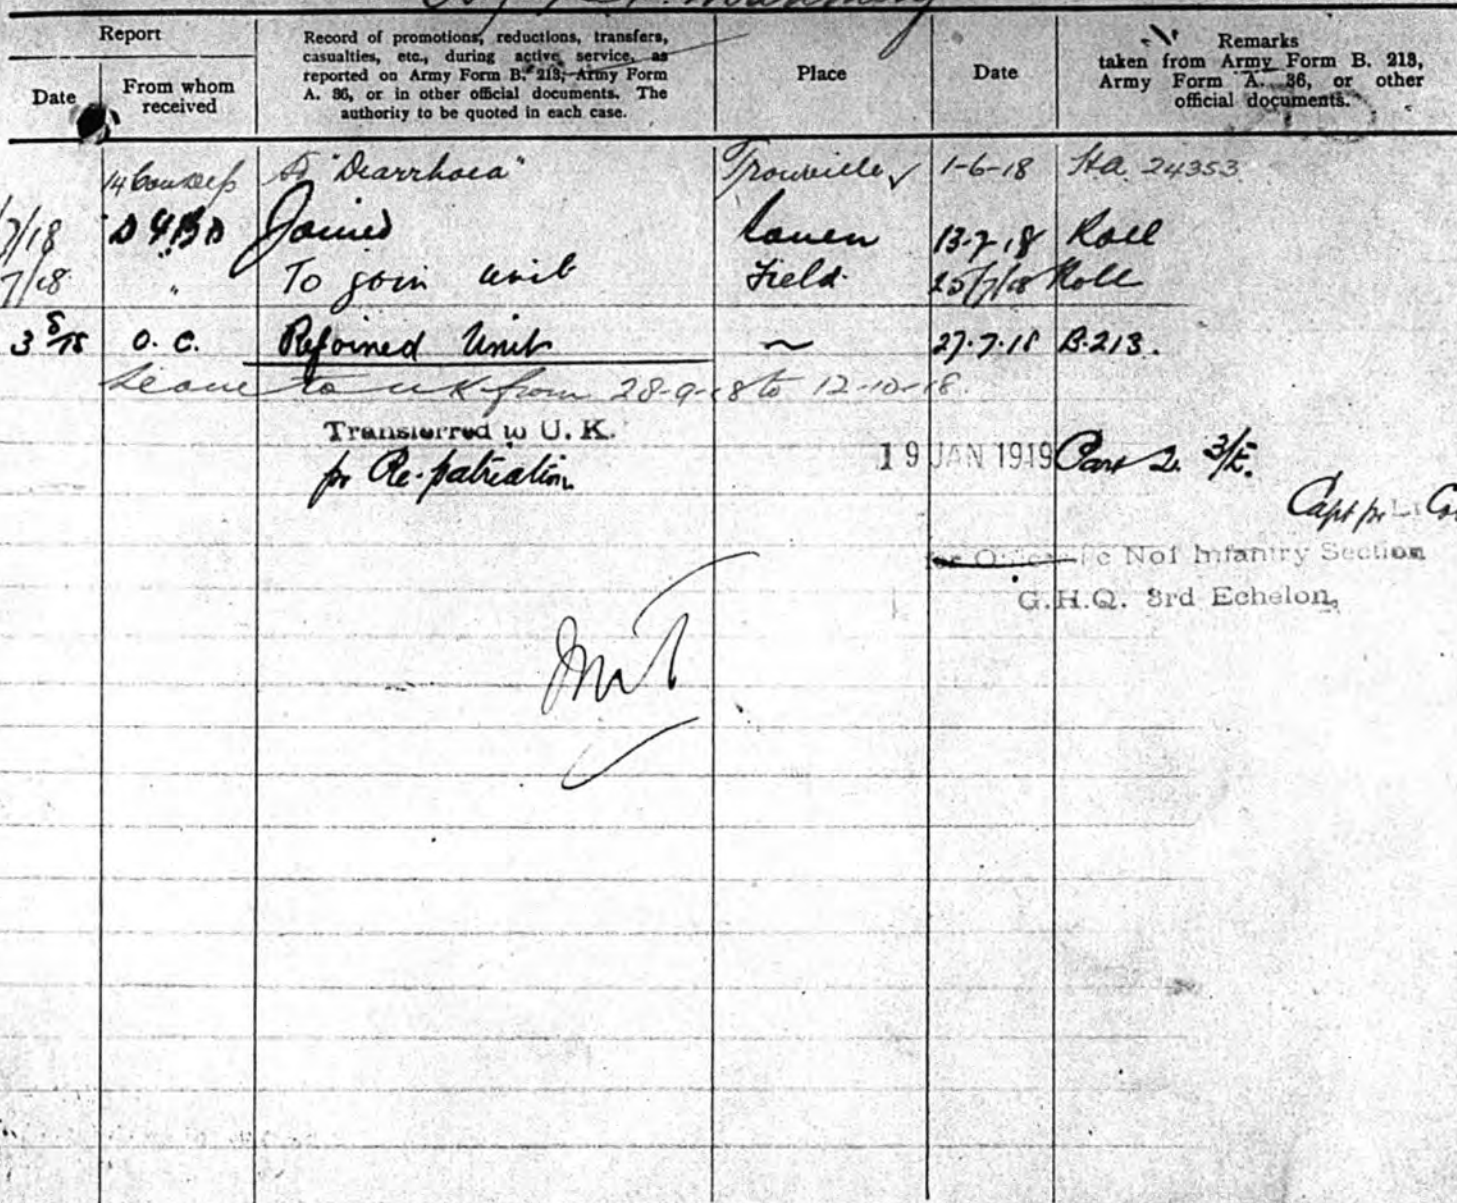 Report
Date
From whom received
Record of promotions, reductions, transfers, casualties, etc., during active service, as reported on Army Form B. 213, Army Form A. 36, or in other official documents. The authority to be quoted in each case.
Place
Date
Remarks taken from Army Form B. 213, Army Form A. 36, or other official documents.
14 Con Dep "Diarrhoea" Trouville 1-6-18 24353
7/18 Joined Rouen 13-7-18 Roll
7/18 " To join unit Field 25/7/18 Roll
3 8/18 O. C. Rejoined Unit ~ 27.7.18 B.213.
Leave to UK from 28-9-18 to 12-10-18.
Transferred to U. K. 19 JAN 1919 Part 2.
for Re-patriation
Capt for Lt
i/c No1 Infantry Section
G.H.Q. 3rd Echelon,